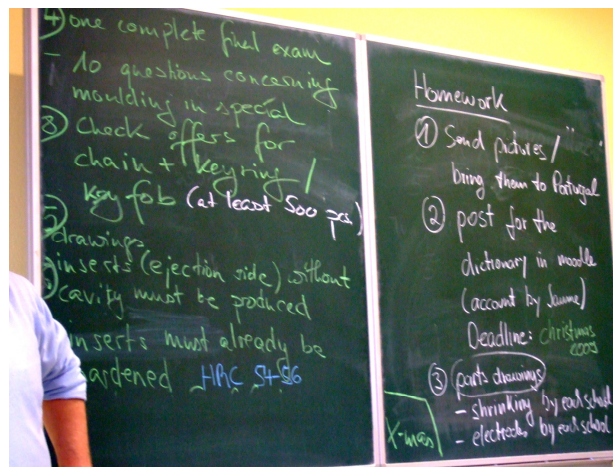 4) one complete final exam
- 10 questions concerning
moulding in special
8) Check offers for
chain + keyring /
key fob (at least 500 pcs)
drawings
inserts (ejection side) without
cavity must be produced
inserts must already be
hardened HRC 54-56
Homework
1 Send pictures /
bring them to Portugal
2 post for the
dictionary in moodle
(account by Jaume)
Deadline: christmas
2009
3 parts drawings
- shrinking by each school
- electrodes by each school
X-mas